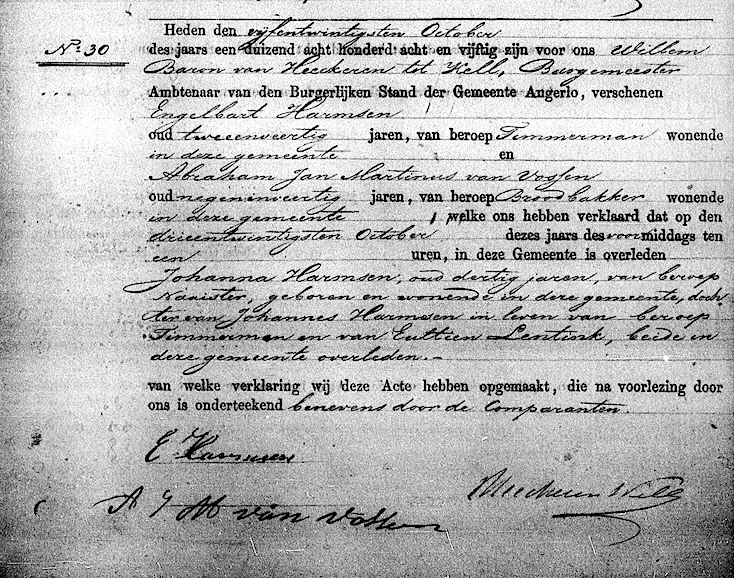 Heden den vijfentwintigsten October
No. 30
des jaars een duizend acht honderd acht en vijftig zijn voor ons Willem
Baron van Heeckeren tot Kell, Burgemeester
Ambtenaar van den Burgerlijken Stand der Gemeente Angerlo, verschenen
Engelbart Harmsen
oud tweeenveertig jaren, van beroep Timmerman wonende
in deze gemeente en
Abraham Jan Martinus van Vossen
oud negenenveertig jaren, van beroep Broodbakker wonende
in deze gemeente, welke ons hebben verklaard dat op den
drieentwintigsten October dezes jaars des voormiddags ten
een uren, in deze Gemeente is overleden
Johanna Harmsen, oud dertig jaren, van beroep
Naaister, geboren en wonende in deze gemeente, doch
ter van Johannes Harmsen in leven van beroep
Timmerman en van Lentink, beide in
deze gemeente overleden.-
van welke verklaring wij deze Acte hebben opgemaakt, die na voorlezing door
ons is onderteekend benevens door de Comparanten.
E Harmsen
A J M van Vossen